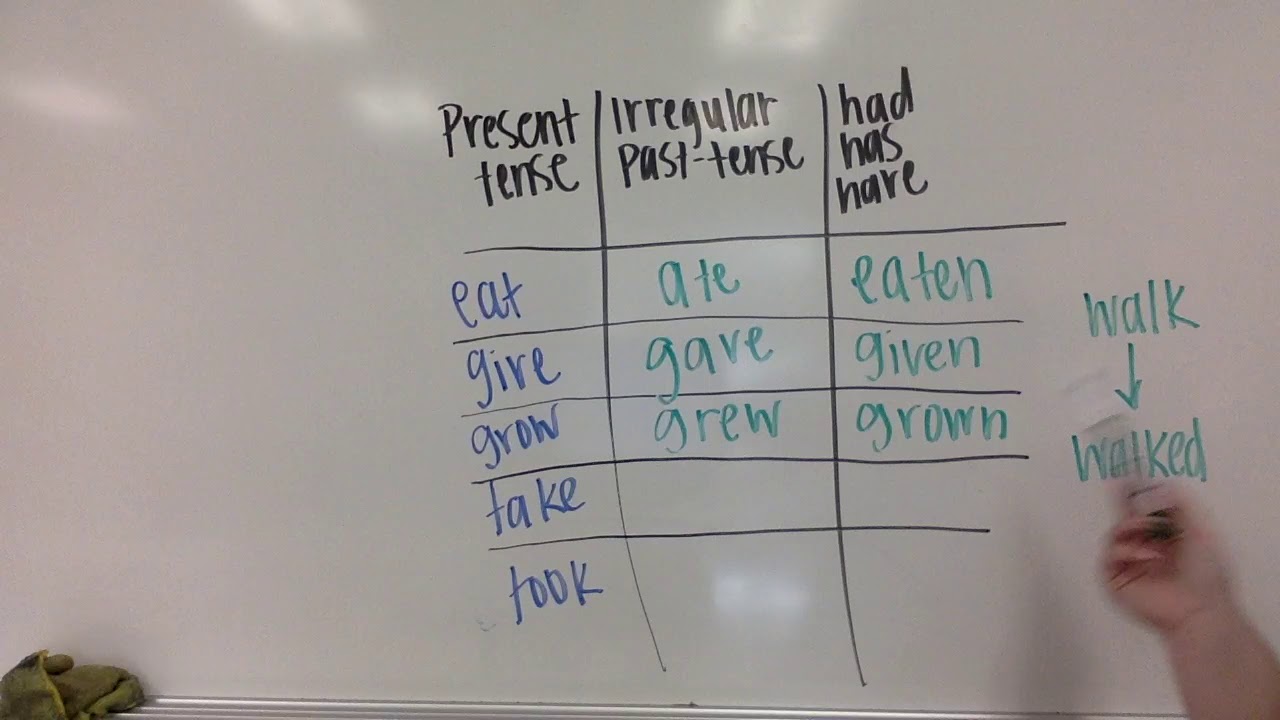 Present tense
Irregular past-tense
had
has
have
eat ate eaten
give gave given
grow grew grown
take
took
walk
↓
walked